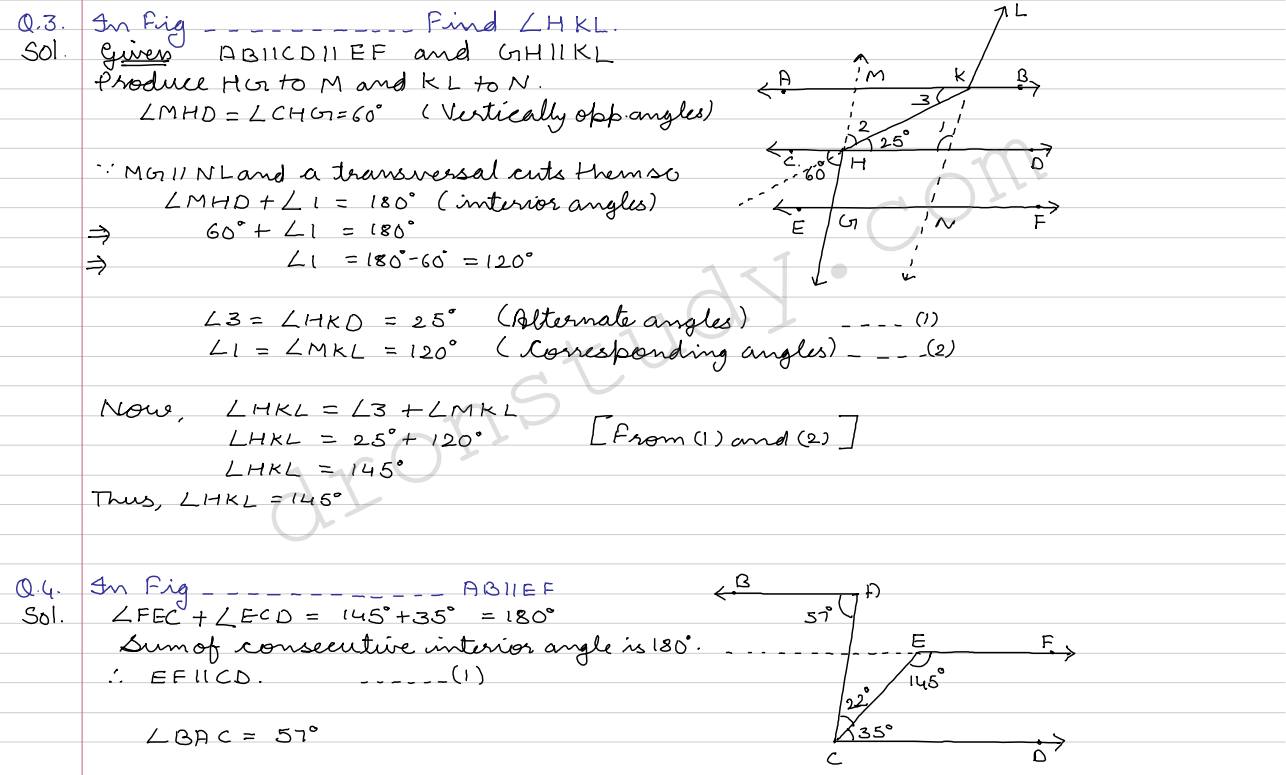 Q.3. In Fig ------------ Find ∠HKL.
Sol. Given AB||CD||EF and GH||KL
Produce HG to M and KL to N.
∠MHD = ∠CHG = 60° (Vertically opp. angles)
∵ MG || NL and a transversal cuts them so
∠MHD + ∠1 = 180° (interior angles)
⇒ 60° + ∠1 = 180°
⇒ ∠1 = 180° - 60° = 120°
∠3 = ∠HKD = 25° (Alternate angles) ---- (1)
∠1 = ∠MKL = 120° (Corresponding angles) ---- (2)
Now, ∠HKL = ∠3 + ∠MKL
∠HKL = 25° + 120° [From (1) and (2)]
∠HKL = 145°
Thus, ∠HKL = 145°
L
A M K B
3
2 1
25°
C H D
60°
E G N F
Q.4. In Fig ------------ AB||EF
Sol. ∠FEC + ∠ECD = 145° + 35° = 180°
Sum of consecutive interior angle is 180°.
∴ EF||CD. ------(1)
∠BAC = 57°
B A
57°
E F
145°
22°
35°
C D
dronstudy.com